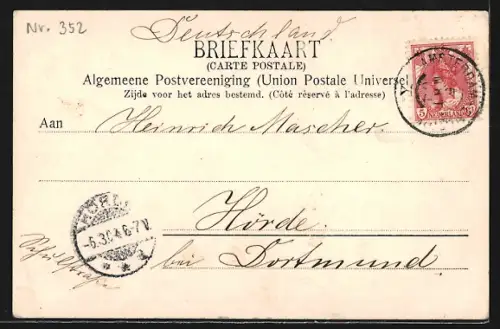 Nr. 352
Deutschland
BRIEFKAART
(CARTE POSTALE)
Algemeene Postvereeniging (Union Postale Universel
Zijde voor het adres bestemd. (Côté rèservé à l'adresse)
AMSTERDAM
5 NEDERLAND 5
Aan Heinrich Mascher.
Hörde.
bei Dortmund
HÖRDE
-6.3.04.6-7V.
Schulstraße